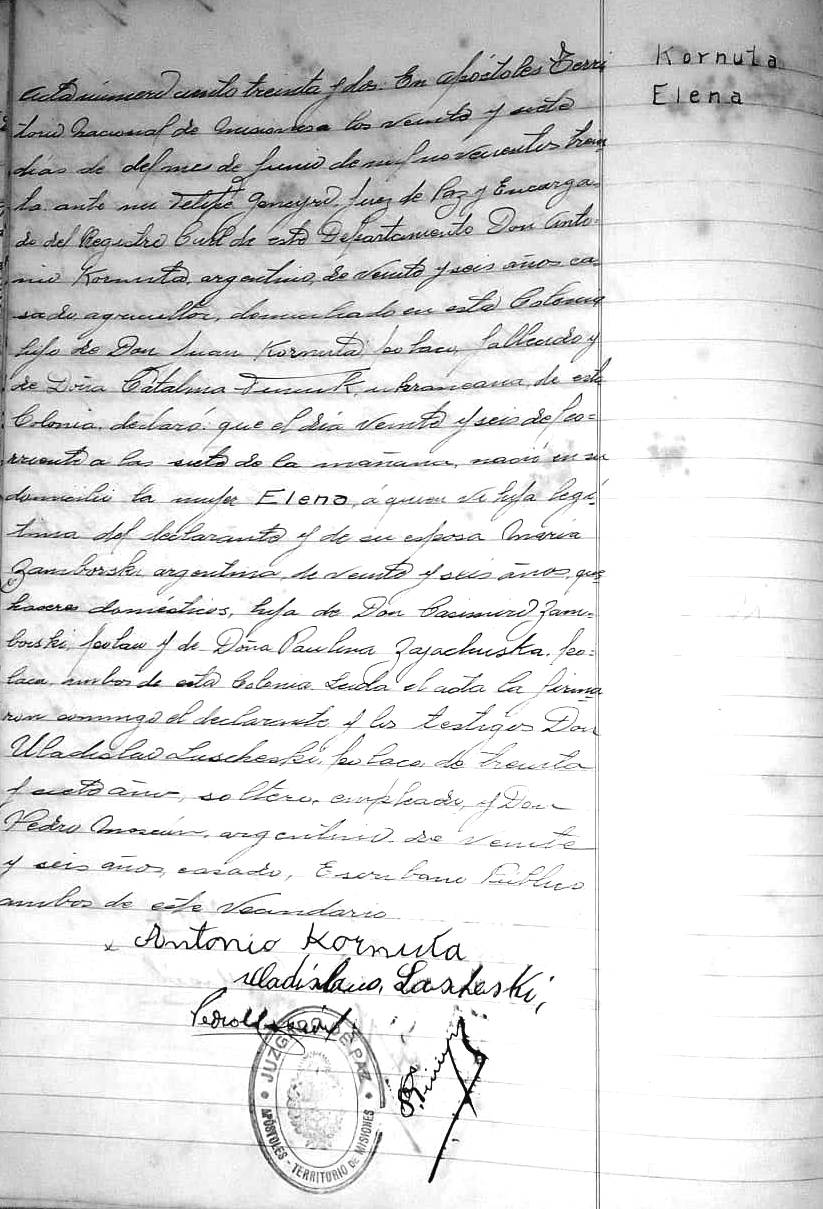 Kornuta
Elena
Acta número ciento treinta y dos. En Apóstoles Terri
torio Nacional de Misiones a los veinte y siete
días de del mes de Junio de mil novecientos trein
ta ante mi Felipe Juez de Paz y Encarga-
do del Registro Civil de este Departamento Don Anto-
nio Kornuta, argentino, de veinte y seis años ca-
sado, agricultor, domiciliado en esta Colonia
hijo de Don Juan Kornuta, polaco, fallecido y
de Doña Catalina ukraneana, de esta
Colonia, declaró: que el día veinte y seis del co=
rriente a las siete de la mañana, nació en su
domicilio la mujer Elena, á quien hija legí-
tima del declarante y de su esposa María
Zamborski, argentina, de veinte y seis años, que
haceres domésticos, hija de Don Casimiro Zam-
borski, polaco y de Doña Paulina Zajachuska, po=
laca, ambos de esta Colonia. Leida el acta la firma
ron conmigo el declarante y los testigos Don
Uladislao Luscheski, polaco, de treinta
y siete años, soltero, empleado, y Don
Pedro argentino, de veinte
y seis años, casado, Escribano Público
ambos de este Vecindario
x Antonio Kornuta
Uladislauo, Lascheski,
Pedro
JUZGADO DE PAZ
APOSTOLES - TERRITORIO DE MISIONES